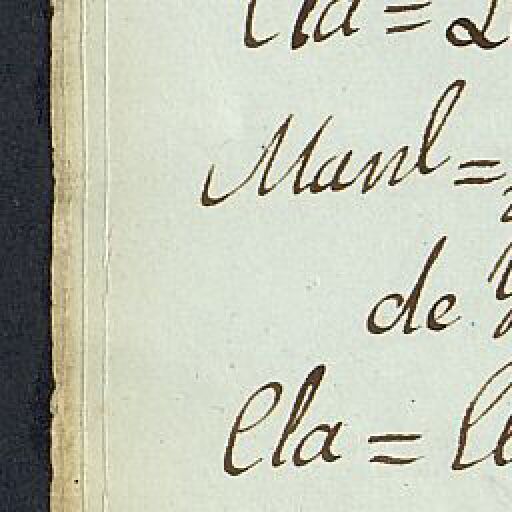 Cla =
Manl =
de
Cla =